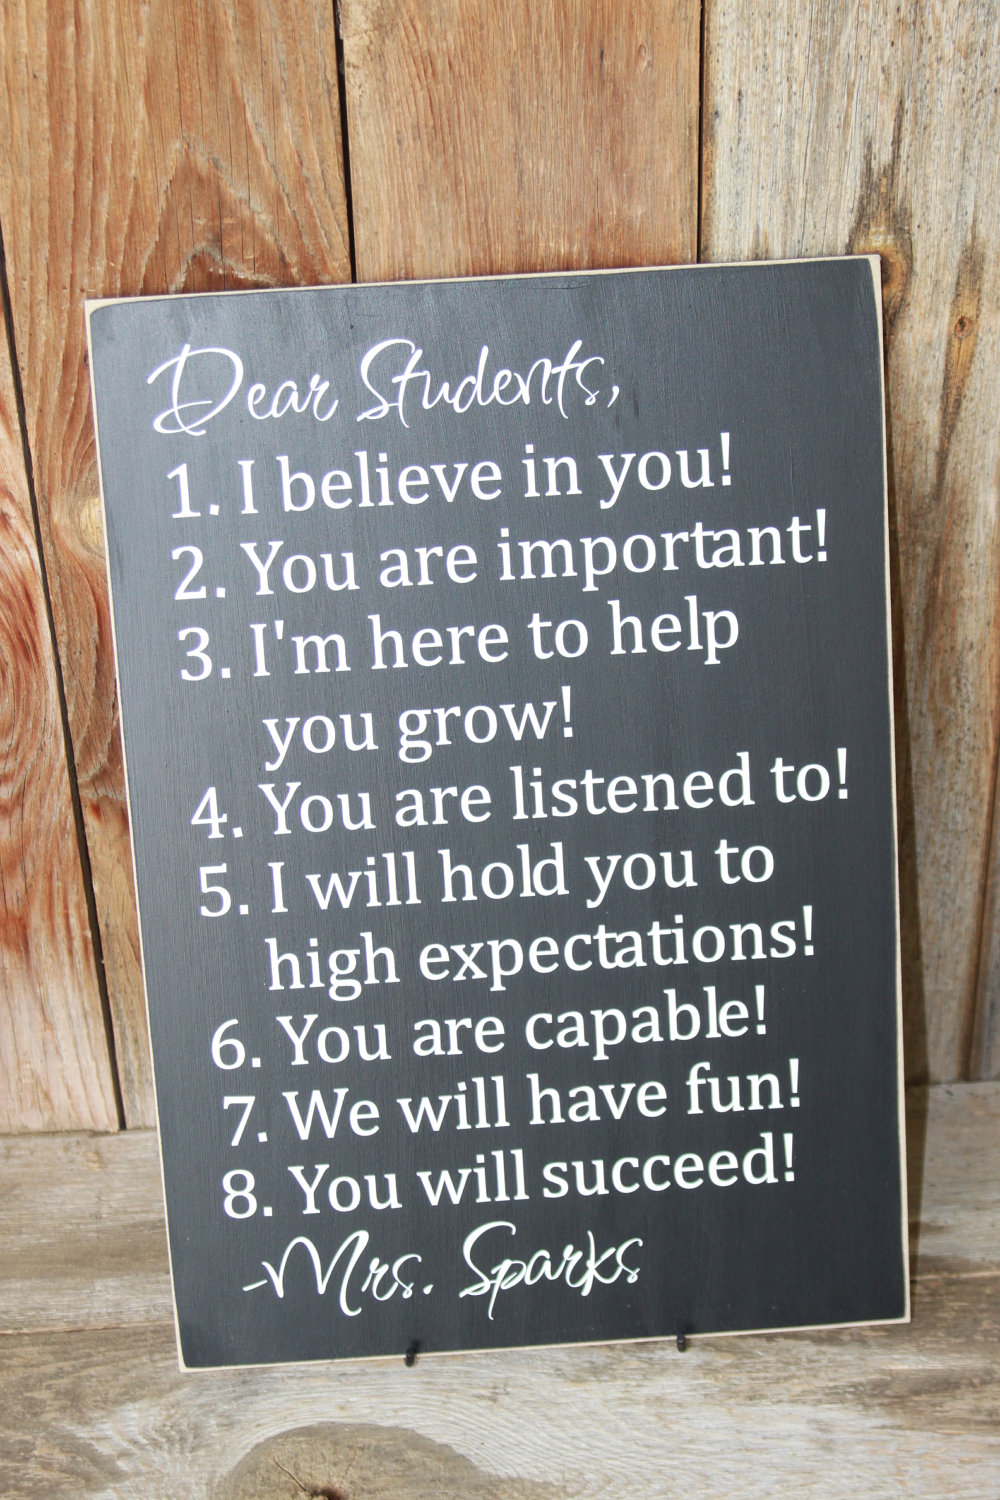 Dear Students,
1. I believe in you!
2. You are important!
3. I'm here to help
you grow!
4. You are listened to!
5. I will hold you to
high expectations!
6. You are capable!
7. We will have fun!
8. You will succeed!
-Mrs. Sparks